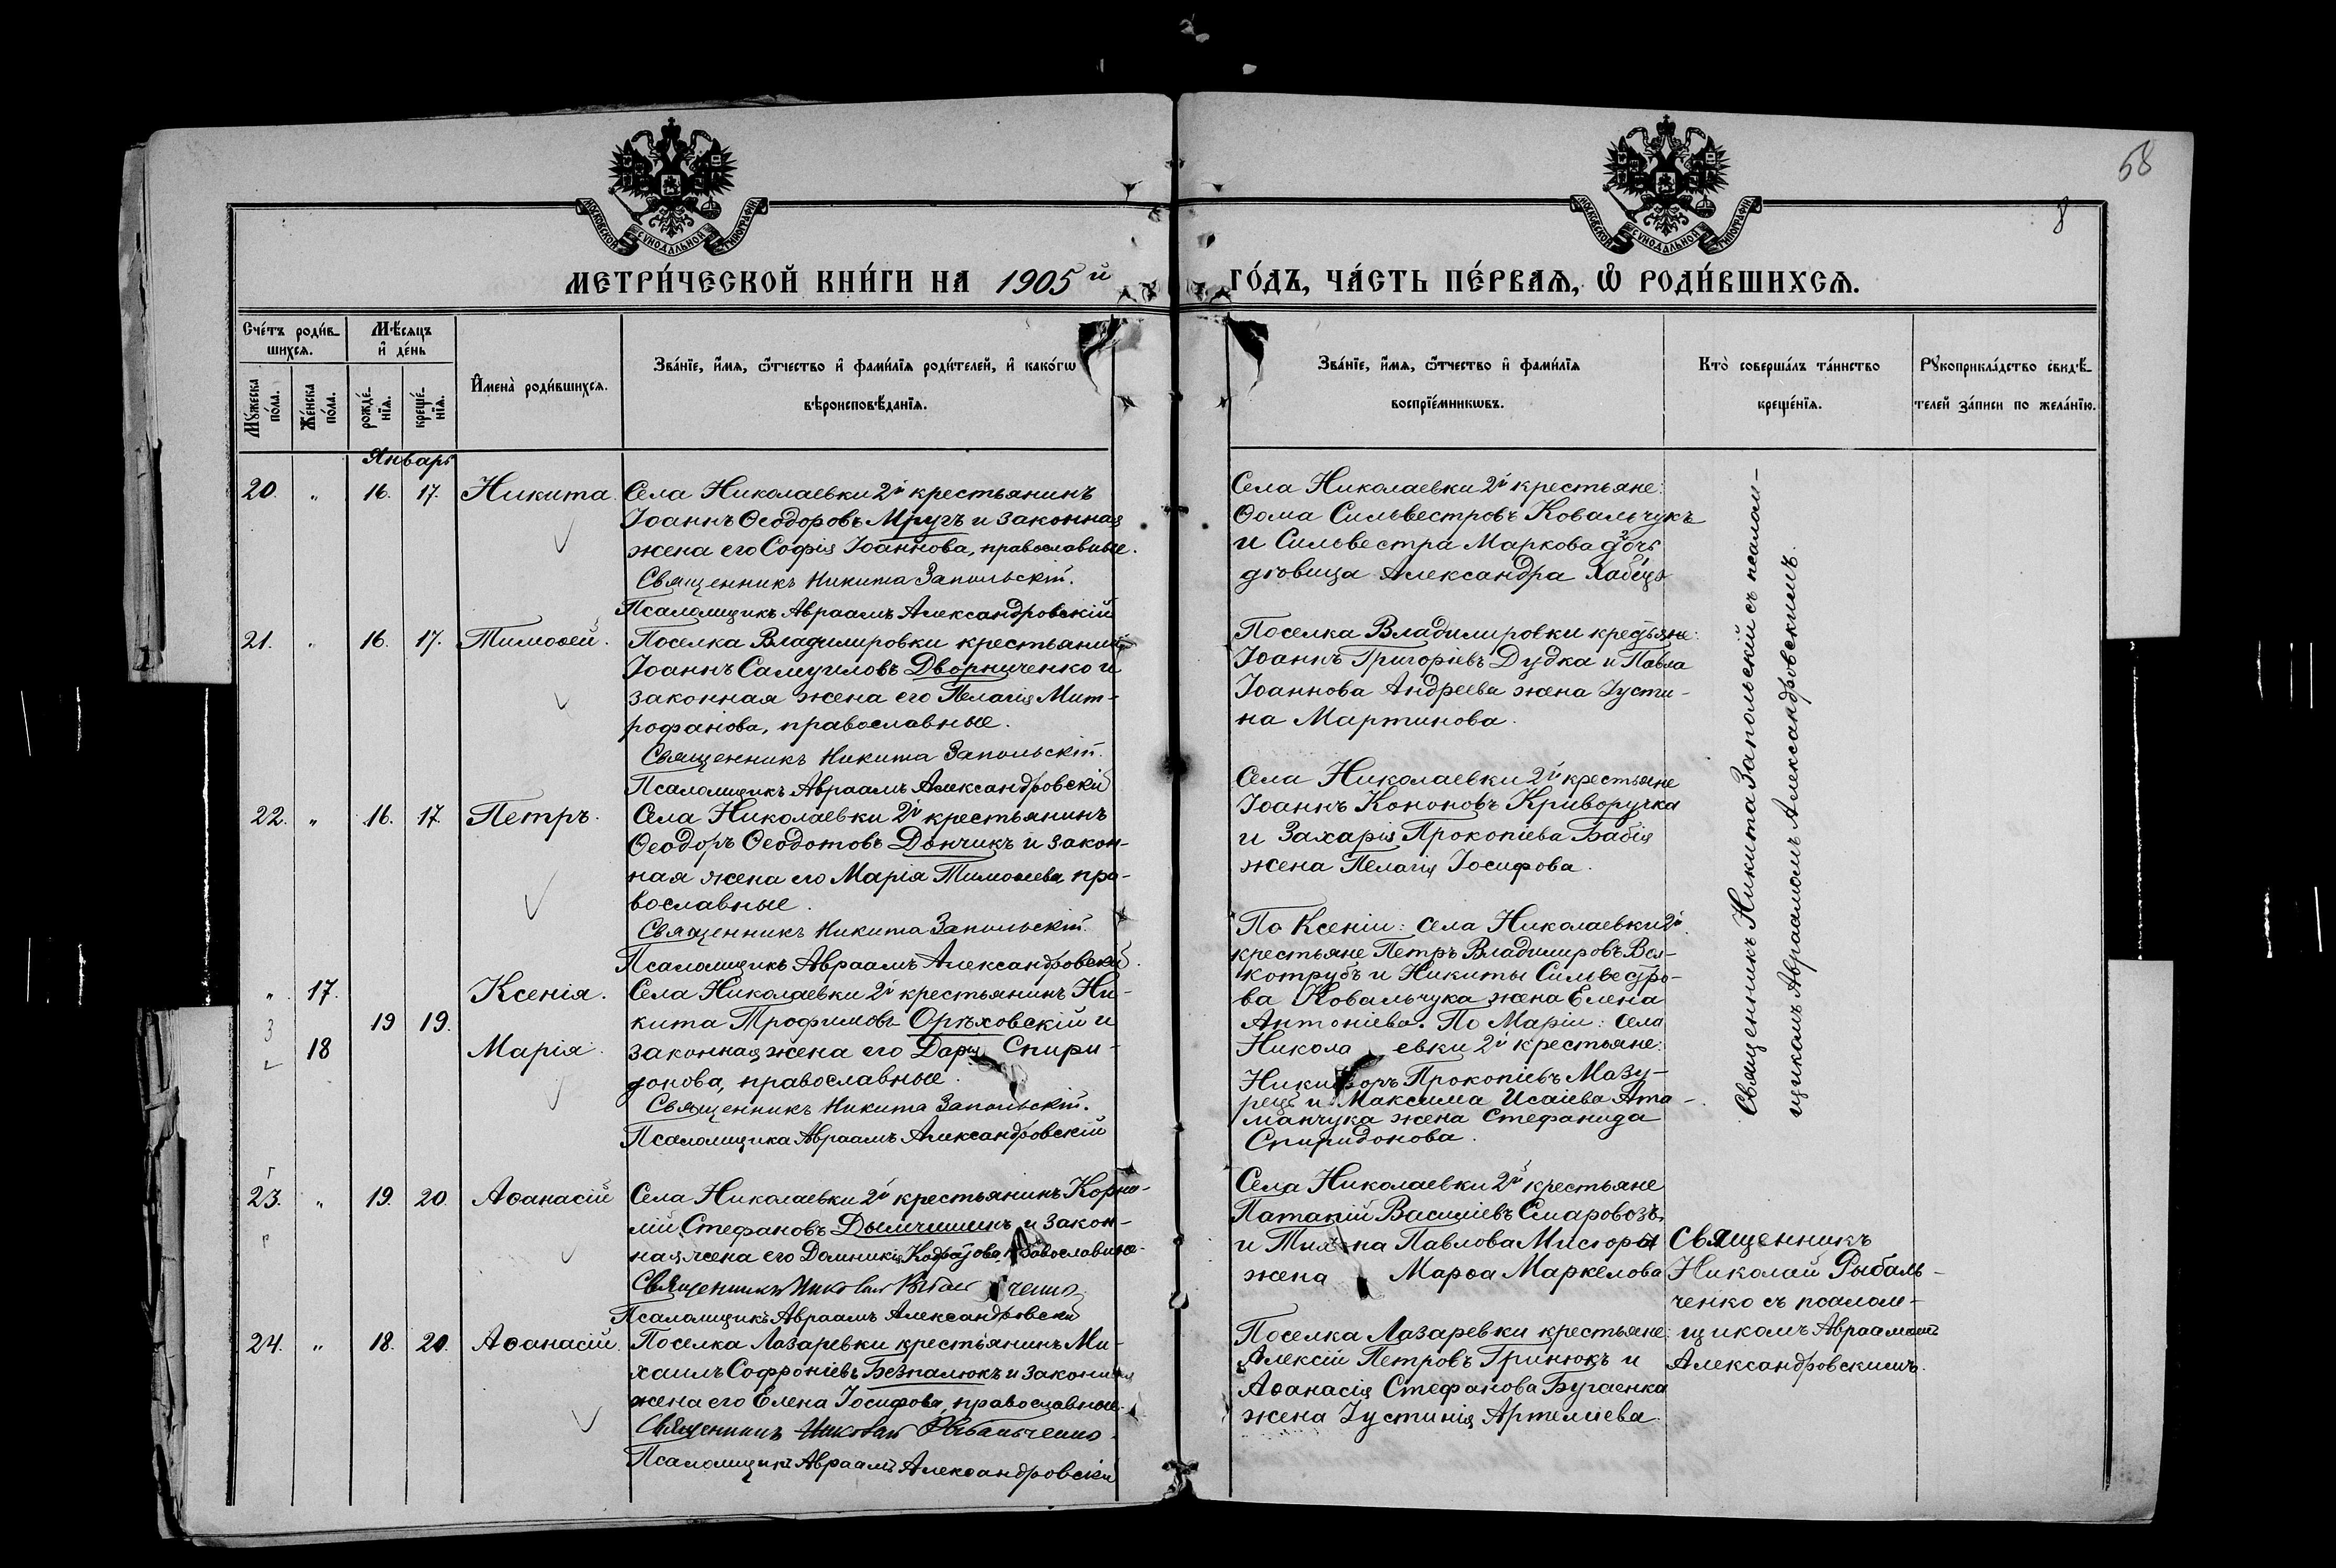 58
8
МОСКОВСКОЙ СУНОДАЛЬНОЙ ТИПОГРАФІИ
МОСКОВСКОЙ СУНОДАЛЬНОЙ ТИПОГРАФІИ
МЕТРИ́ЧЕСКОЙ КНИ́ГИ НА 1905й ГО́ДЪ, ЧА́СТЬ ПЕ́РВАѦ, Ѡ РОДИ́ВШИХСѦ.
Сче́тъ роди́в-
шихсѧ.
Мꙋ́жеска
по́ла.
Же́нска
по́ла.
Мѣ́сѧцъ
и҆ де́нь
рожде́-
нїѧ.
креще́-
нїѧ.
И҆мена̀ роди́вшихсѧ.
Зва́нїе, и҆́мѧ, ѻ҆́тчество и҆ фами́лїѧ роди́телей, и҆ како́гѡ
вѣроисповѣ́данїѧ.
Зва́нїе, и҆́мѧ, ѻ҆́тчество и҆ фами́лїѧ
воспрїе́мникѡвъ.
Кто̀ соверша́лъ та́инство
креще́нїѧ.
Рꙋкоприкла́дство свидѣ́-
телей за́писи по жела́нїю.
Январь
20. " 16. 17. Никита.
Села Николаевки 2й крестьянинъ
Іоаннъ Ѳеодоровъ Мругъ и законная
жена его Софія Іоаннова, православные.
Священникъ Никита Запольскій.
Псаломщикъ Авраамъ Александровскій
Села Николаевки 2й крестьяне:
Ѳома Сильвестровъ Ковальчукъ
и Сильвестра Маркова дочь
дѣвица Александра
21. " 16. 17. Тимоѳей.
Поселка Владимировки крестьянинъ
Іоаннъ Самуиловъ Дворниченко и
законная жена его Пелагія Мит-
рофанова, православные.
Священникъ Никита Запольскій.
Псаломщикъ Авраамъ Александровскій
Поселка Владимировки крестьяне:
Іоаннъ Григоріевъ Дудка и Павла
Іоаннова Андреева жена Іусти-
на Мартинова.
22. " 16. 17. Петръ.
Села Николаевки 2й крестьянинъ
Ѳеодоръ Ѳеодотовъ Дончикъ и закон-
ная жена его Марія Тимоѳеева, пра-
вославные.
Священникъ Никита Запольскій.
Псаломщикъ Авраамъ Александровскій.
Села Николаевки 2й крестьяне
Іоаннъ Кононовъ Криворучка
и Захарія Прокопіева Бабія
жена Пелагія Іосифова.
" 17. Ксенія.
19 19.
18 Марія.
Села Николаевки 2й крестьянинъ Ни-
кита Трофимовъ Орѣховскій и
законная жена его Дарія Спири-
донова, православные.
Священникъ Никита Запольскій.
Псаломщикъ Авраамъ Александровскій
По Ксеніи: села Николаевки 2й
крестьяне Петръ Владимировъ Вол-
котрубъ и Никиты Сильвестро-
ва Ковальчука жена Елена
Антоніева. По Маріи: села
Николаевки 2й крестьяне:
Никифоръ Прокопіевъ Мазу-
рецъ и Максима Исаіева Ата-
манчука жена Стефанида
Спиридонова.
Священникъ Никита Запольскій съ псалом-
щикомъ Авраамомъ Александровскимъ.
23. " 19. 20. Аѳанасій
Села Николаевки 2й крестьянинъ Корни-
лій Стефановъ Дымчишинъ и закон-
ная жена его Домникія православные.
Священникъ Николай Рыбальченко
Псаломщикъ Авраамъ Александровскій
Села Николаевки 2й крестьяне
Патапій Василіевъ
и Павлова Мисюры
жена Марѳа Маркелова
Священникъ
Николай Рыбаль-
ченко съ псалом-
щикомъ Авраамомъ
Александровскимъ.
24. " 18. 20. Аѳанасій.
Поселка Лазаревки крестьянинъ Ми-
хаилъ Софроніевъ Безпалюкъ и законная
жена его Елена Іосифова, православные.
Священникъ Николай Рыбальченко.
Псаломщикъ Авраамъ Александровскій
Поселка Лазаревки крестьяне:
Алексій Петровъ Гринюкъ и
Аѳанасія Стефанова Бугаенка
жена Іустинія Артеміева.